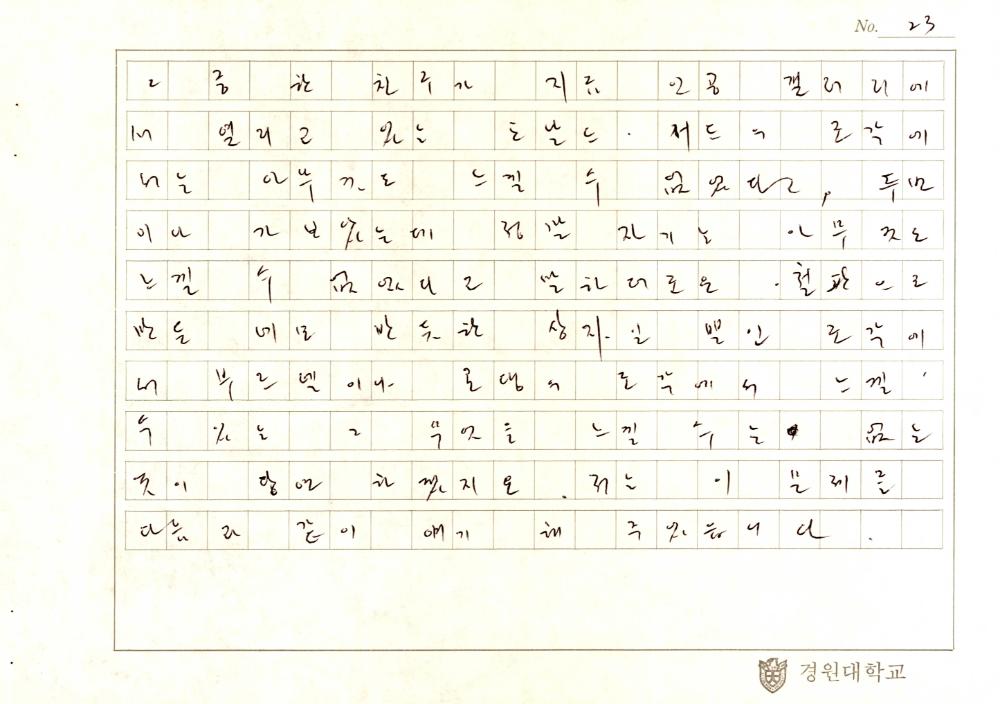 No. 23
그 중 한 친구가 지금 인공 갤러리에
서 열리고 있는 도날드·저드의 조각에
서는 아무것도 느낄 수 없었다고, 두번
이나 가보았는데 정말 자기는 아무 것도
느낄 수 없었다고 말하더군요. 철판으로
만든 네모 반듯한 상자일 뿐인 조각에
서 부르델이나 로댕의 조각에서 느낄
수 있는 그 무엇을 느낄 수는 없는
것이 당연 하겠지요. 저는 이 문제를
다음과 같이 얘기 해 주었습니다.
경원대학교